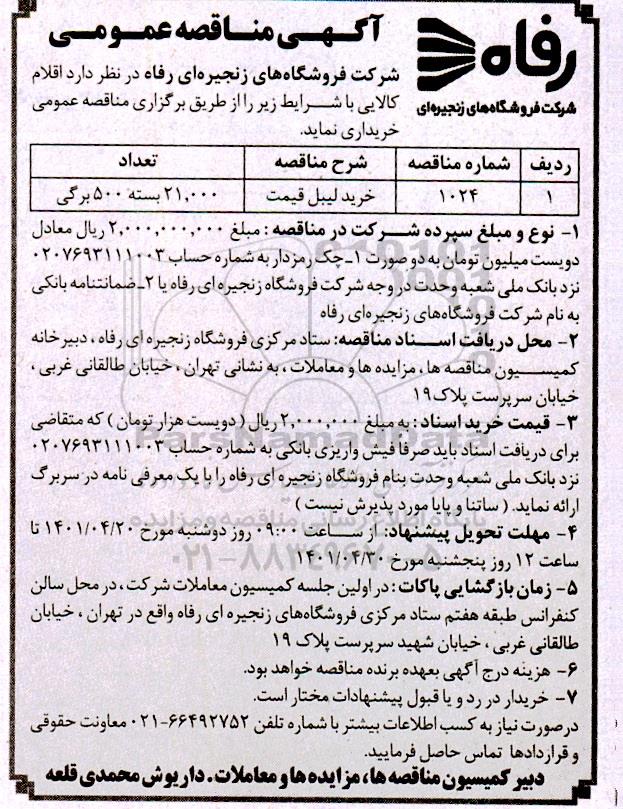 آگهی مناقصه عمومی
رفاه
شرکت فروشگاه‌های زنجیره‌ای
شرکت فروشگاه‌های زنجیره‌ای رفاه در نظر دارد اقلام
کالایی با شرایط زیر را از طریق برگزاری مناقصه عمومی
خریداری نماید.
ردیف شماره مناقصه شرح مناقصه تعداد
۱ ۱۰۲۴ خرید لیبل قیمت ۲۱,۰۰۰ بسته ۵۰۰ برگی
۱- نوع و مبلغ سپرده شرکت در مناقصه : مبلغ ۲,۰۰۰,۰۰۰,۰۰۰ ریال معادل
دویست میلیون تومان به دو صورت ۱-چک رمزدار به شماره حساب ۰۲۰۷۶۹۳۱۱۱۰۰۳
نزد بانک ملی شعبه وحدت در وجه شرکت فروشگاه زنجیره ای رفاه یا ۲-ضمانتنامه بانکی
به نام شرکت فروشگاه‌های زنجیره‌ای رفاه
۲- محل دریافت اسناد مناقصه: ستاد مرکزی فروشگاه زنجیره ای رفاه ، دبیرخانه
کمیسیون مناقصه ها ، مزایده ها و معاملات ، به نشانی تهران ، خیابان طالقانی غربی ،
خیابان سرپرست پلاک ۱۹
۳- قیمت خرید اسناد : به مبلغ ۲,۰۰۰,۰۰۰ ریال ( دویست هزار تومان ) که متقاضی
برای دریافت اسناد باید صرفا فیش واریزی بانکی به شماره حساب ۰۲۰۷۶۹۳۱۱۱۰۰۳
نزد بانک ملی شعبه وحدت بنام فروشگاه زنجیره ای رفاه را با یک معرفی نامه در سربرگ
ارائه نماید. ( ساتنا و پایا مورد پذیرش نیست )
۴- مهلت تحویل پیشنهاد: از ساعت ۰۹:۰۰ روز دوشنبه مورخ ۱۴۰۱/۰۴/۲۰ تا
ساعت ۱۲ روز پنجشنبه مورخ ۱۴۰۱/۰۴/۳۰
۵- زمان بازگشایی پاکات : در اولین جلسه کمیسیون معاملات شرکت ، در محل سالن
کنفرانس طبقه هفتم ستاد مرکزی فروشگاه‌های زنجیره ای رفاه واقع در تهران ، خیابان
طالقانی غربی ، خیابان شهید سرپرست پلاک ۱۹
۶- هزینه درج آگهی بعهده برنده مناقصه خواهد بود.
۷- خریدار در رد و یا قبول پیشنهادات مختار است.
درصورت نیاز به کسب اطلاعات بیشتر با شماره تلفن ۶۶۴۹۲۷۵۲-۰۲۱ معاونت حقوقی
و قراردادها تماس حاصل فرمایید.
دبیر کمیسیون مناقصه ها، مزایده ها و معاملات . داریوش محمدی قلعه
ParsNamadData
پایگاه اطلاع رسانی مناقصه و مزایده